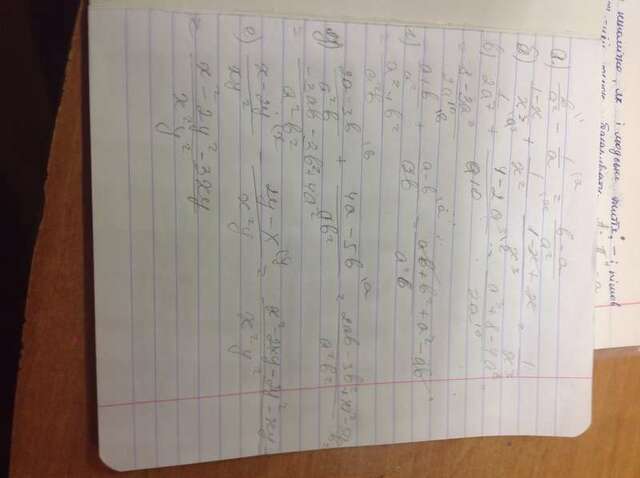 непомітно, як і людське життя, – і, пішов
а) b/a² \1 − 1/a \a = b−a/a²
б) 1−x/x³ + 1/x² \x 1−x+x/x³ 1/x³
в) 1/2a⁷ \a³ + 4−2a³/a10 \2 = a³+8−4a³/2a¹⁰
= 8−3a³/2a¹⁰
г) a+b/a² \b + a−b/ab \a = ab+b²+a²−ab/a²b
= a²+b²/a²b
д) 2a−3b/a²b \b + 4a−5b/ab² \a = 2ab−3b²+4a²−5ab/a²b²
= −3ab−3b²+4a²/a²b²
е) x−2y/xy² \x − 2y−x/x²y \y = x²−2xy−2y²−xy/x²y²
x²−2y²−3xy/x²y²